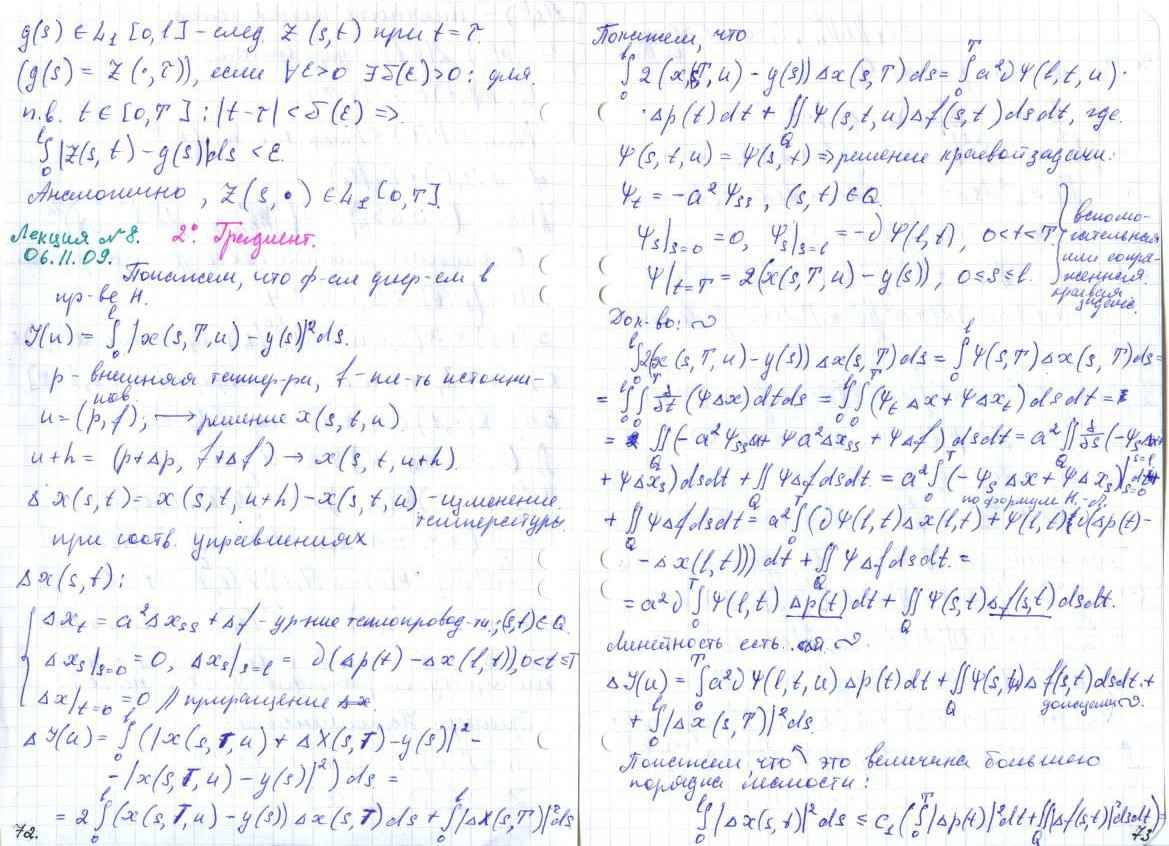 g(s) ∈ L₁ [0,l] - след Z (s,t) при t = τ.
(g(s) = Z (·,τ)), если ∀ε>0 ∃δ(ε)>0: для
п.в. t ∈ [0,T] : |t-τ| < δ(ε) =>
∫₀ˡ |Z(s,t) - g(s)|ds < ε.
Аналогично, Z(s,·) ∈ L₁ [0,T].
Лекция №8. 2°. Градиент.
06.11.09.
Покажем, что ф-ал диф-ем в
пр-ве H.
J(u) = ∫₀ˡ |x(s,T,u) - y(s)|² ds.
p - внешняя темпер-ра, f - пл-ть источни-
ков.
u = (p,f); ⟶ решение x(s,t,u)
u+h = (p+Δp, f+Δf) → x(s,t,u+h).
Δx(s,t) = x(s,t,u+h) - x(s,t,u) - изменение
температуры
при соотв. управлениях
Δx(s,t):
{ Δxₜ = a²Δxₛₛ + Δf - ур-ние теплопровод-ти; (s,t)∈Q.
Δxₛ|ₛ₌₀ = 0, Δxₛ|ₛ₌ₗ = ν(Δp(t) - Δx(l,t)), 0<t≤T
Δx|ₜ₌₀ = 0 // приращение
ΔJ(u) = ∫₀ˡ (|x(s,T,u) + Δx(s,T) - y(s)|² -
- |x(s,T,u) - y(s)|²) ds =
= 2∫₀ˡ (x(s,T,u) - y(s)) Δx(s,T) ds + ∫₀ˡ |Δx(s,T)|² ds
72.
Покажем, что
∫₀ˡ 2(x(s,T,u) - y(s)) Δx(s,T) ds = ∫₀ᵀ a²ν Ψ(l,t,u)·
·Δp(t) dt + ∬_Q Ψ(s,t,u) Δf(s,t) ds dt, где
Ψ(s,t,u) = Ψ(s,t) => решение краевой задачи:
Ψₜ = -a² Ψₛₛ, (s,t) ∈ Q.
Ψₛ|ₛ₌₀ = 0, Ψₛ|ₛ₌ₗ = -ν Ψ(l,t), 0<t<T
Ψ|ₜ₌T = 2(x(s,T,u) - y(s)), 0≤s≤l.
} вспомо-
гательная
или сопря-
женная
краевая
задача.
Док-во: ~
∫₀ˡ 2(x(s,T,u) - y(s)) Δx(s,T) ds = ∫₀ˡ Ψ(s,T) Δx(s,T) ds =
= ∫₀ˡ∫₀ᵀ ∂/∂t (ΨΔx) dt ds = ∫₀ˡ∫₀ᵀ (Ψₜ Δx + ΨΔxₜ) ds dt =
= ∬_Q (-a²Ψₛₛ Δx + Ψa²Δxₛₛ + ΨΔf) ds dt = a² ∬_Q ∂/∂s (-ΨₛΔx +
+ ΨΔxₛ) ds dt + ∬_Q ΨΔf ds dt. = a² ∫₀ᵀ (-Ψₛ Δx + ΨΔxₛ)|ₛ₌₀ˢ⁼ˡ dt +
по формуле Н.-Л.
+ ∬_Q ΨΔf ds dt = a² ∫₀ᵀ (νΨ(l,t)Δx(l,t) + Ψ(l,t)(ν(Δp(t) -
- Δx(l,t))) dt + ∬_Q ΨΔf ds dt. =
= a²ν ∫₀ᵀ Ψ(l,t) Δp(t) dt + ∬_Q Ψ(s,t) Δf(s,t) ds dt.
Линейность есть. ~
ΔJ(u) = ∫₀ᵀ a²ν Ψ(l,t,u) Δp(t) dt + ∬_Q Ψ(s,t) Δf(s,t) ds dt. +
+ ∫₀ˡ |Δx(s,T)|² ds.
Покажем, что это величина большего
порядка малости:
∫₀ˡ |Δx(s,t)|² ds ≤ c₁ (∫₀ᵀ |Δp(t)|² dt + ∬_Q |Δf(s,t)|² ds dt) =
73